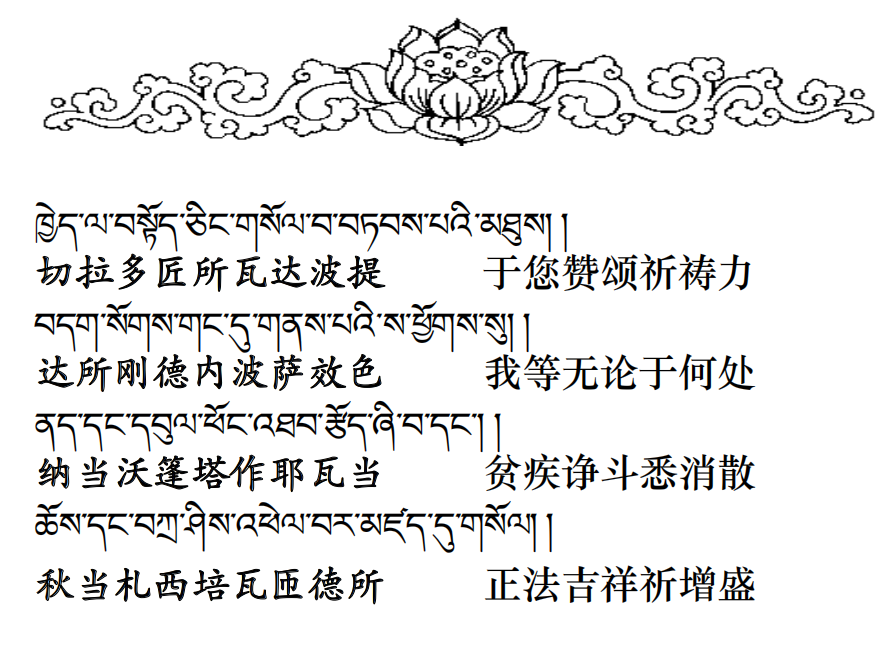 ཁྱེད་ལ་བསྟོད་ཅིང་གསོལ་བ་བཏབས་པའི་མཐུས། །
切拉多匠所瓦达波提 于您赞颂祈祷力
བདག་སོགས་གང་དུ་གནས་པའི་ས་ཕྱོགས་སུ། །
达所刚德内波萨效色 我等无论于何处
ནད་དང་དབུལ་ཕོང་འཐབ་རྩོད་ཞི་བ་དང་། །
纳当沃篷塔作耶瓦当 贫疾诤斗悉消散
ཆོས་དང་བཀྲ་ཤིས་འཕེལ་བར་མཛད་དུ་གསོལ། །
秋当札西培瓦匝德所 正法吉祥祈增盛